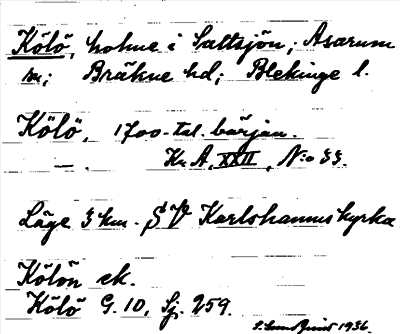 Kölö, holme i Saltsjön, Asarum
sn; Bräkne hd; Blekinge l.
Kölö, 1700-tal. början.
— . Kr A, XXII, N:o 33.
Läge 3 km. SV Karlshamns kyrka
Kölön ek.
Kölö G. 10, Sj. 259.
1936.